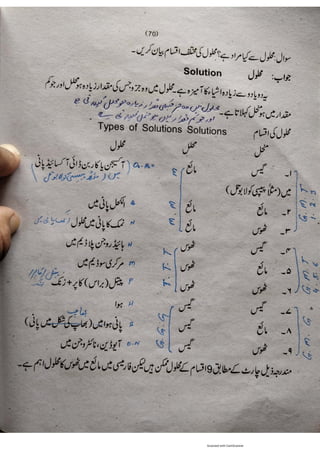 (70)
سوال: محلول سے کیا مراد ہے؟ محلول کی مختلف اقسام بیان کریں۔
جواب: محلول Solution
یہ دو یا دو سے زیادہ اشیاء کا آمیزہ ہے۔ محلول میں وہ جزو جس کی مقدار زیادہ ہو محلل اور جو کم
مقدار میں ہو منحل کہلاتا ہے۔
Types of Solutions Solutions
محلول کی اقسام
منحل محلل محلول
۱۔ گیس مائع آکسیجن یا کاربن ڈائی آکسائیڈ پانی
میں (مثلاً پیپسی کولا بوتل)
۲۔ مائع مائع الکحل پانی میں
۳۔ ٹھوس مائع نمک کا پانی میں محلول
۴۔ گیس ٹھوس ہائیڈروجن پلاڈیم میں
۵۔ مائع ٹھوس مرکری سوڈیم میں
۶۔ ٹھوس ٹھوس پیتل (براس) کاپر + زنک
۷۔ گیس گیس ہوا
۸۔ مائع گیس پانی ہوا میں (بھاپ کی شکل میں پانی)
۹۔ ٹھوس گیس آیوڈین، نائٹروجن میں
مندرجہ ذیل چارٹ کے مطابق 9 اقسام کے محلول ممکن ہیں لیکن فارمیسی میں مائع میں ٹھوس کا محلول اہم ہے۔
Scanned with CamScanner